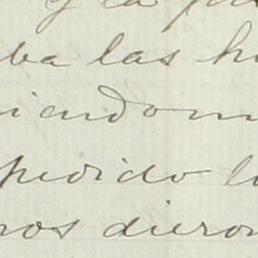 y la pa
ba las h
iendom
pedido l
nos dieron